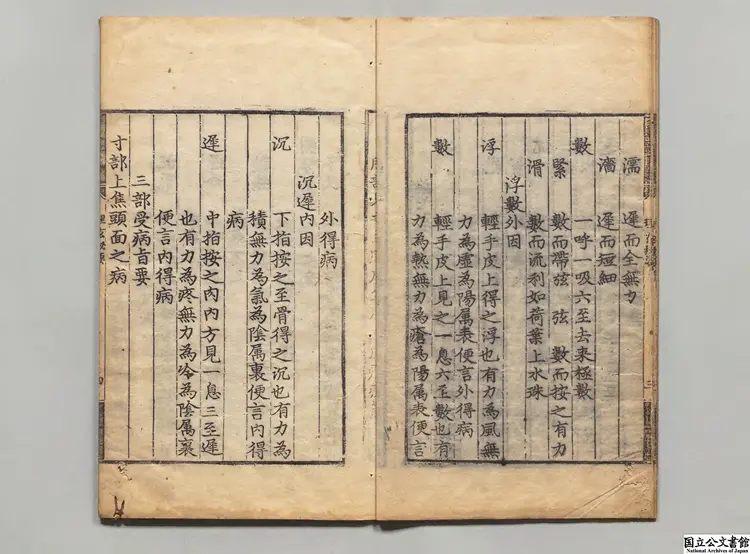 濡　遲而全無力
濇　遲而短細
數　一呼一吸六至去来極數
緊　數而帶弦　弦　數而按之有力
滑　數而流利如荷葉上水珠
浮數外因
浮　輕手皮上得之浮也有力為風無
力為虛為陽属表便言外得病
數　輕手皮上見之一息六至數也有
力為熱無力為瘡為陽属表便言
外得病
沉遲内因
沉　下指按之至骨得之沉也有力為
積無力為氣為陰属裏便言内得
病
遲　中指按之内内方見一息三至遲
也有力為疼無力為冷為陰属裏
便言内得病
三部受病旨要
寸部上焦頭面之病
国立公文書館
National Archives of Japan